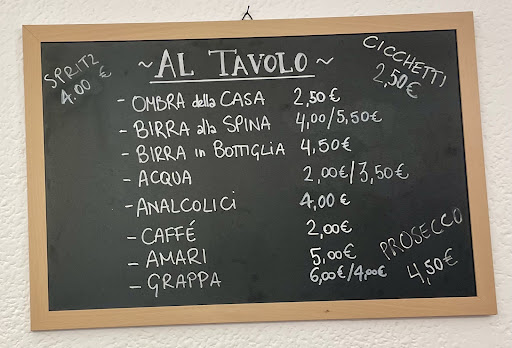 SPRITZ
4.00 €
~ AL TAVOLO ~
CICCHETTI
2,50€
- OMBRA della CASA 2,50€
- BIRRA alla SPINA 4,00/5,50€
- BIRRA in BOTTIGLIA 4,50€
- ACQUA 2,00€/3,50€
- ANALCOLICI 4,00€
- CAFFÉ 2,00€
- AMARI 5,00€
- GRAPPA 6,00€/4,00€
PROSECCO
4,50€